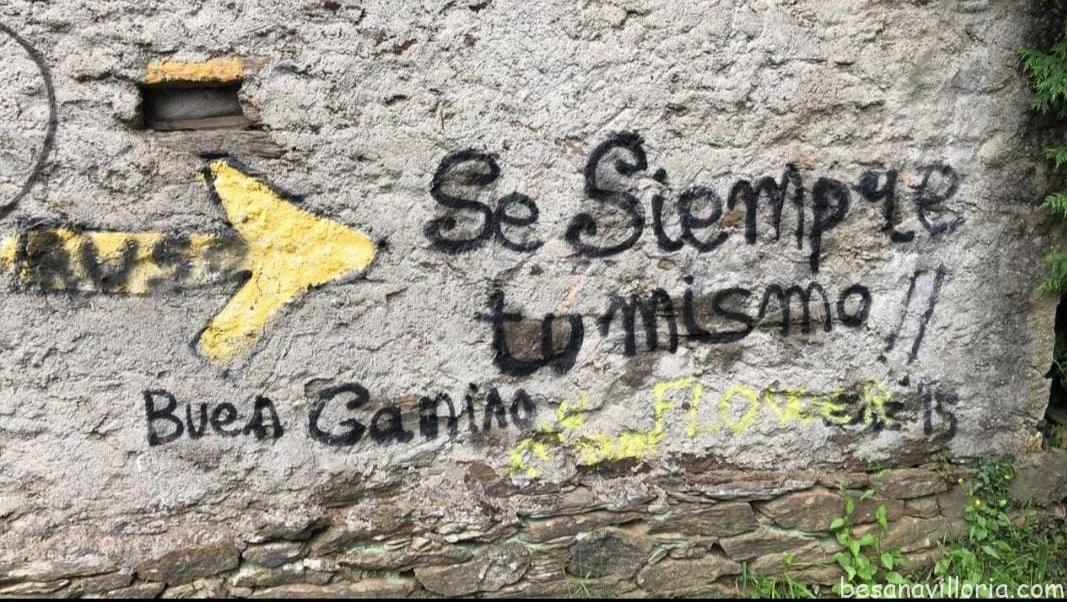 Se Siempre
tu mismo!!
Buen Camino
FLOWER '15
besanavilloria.com